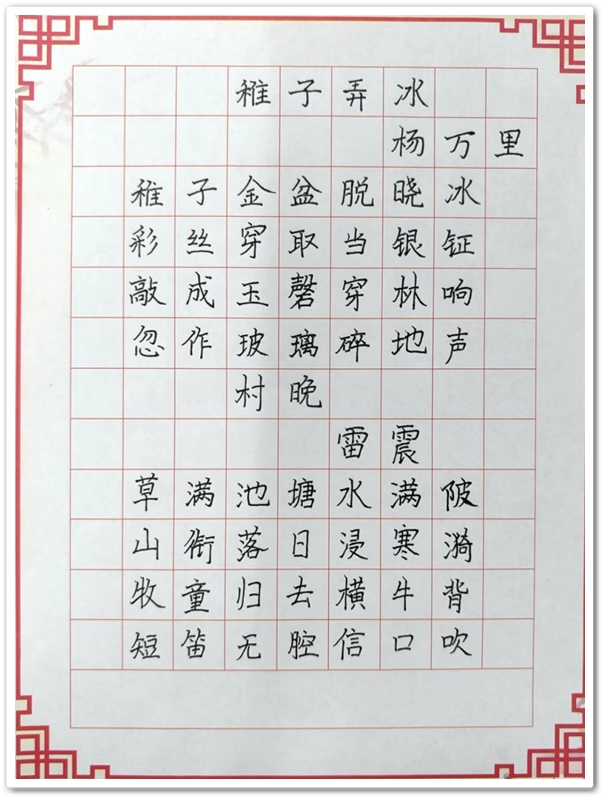 稚子弄冰
杨万里
稚子金盆脱晓冰
彩丝穿取当银钲
敲成玉磬穿林响
忽作玻璃碎地声
村晚
雷震
草满池塘水满陂
山衔落日浸寒漪
牧童归去横牛背
短笛无腔信口吹